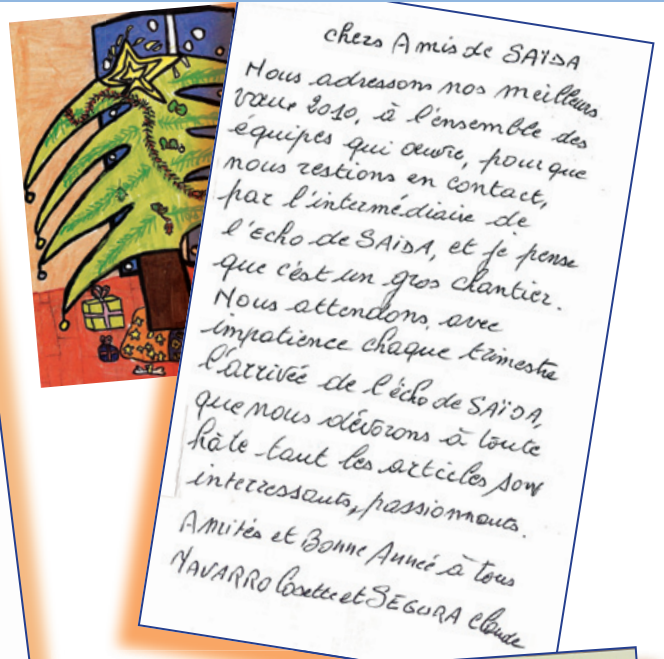 chers Amis de SAÏDA
Nous adressons nos meilleurs
vœux 2010, à l'ensemble des
équipes qui œuvre, pour que
nous restions en contact,
par l'intermédiaire de
l'écho de SAÏDA, et je pense
que c'est un gros chantier.
Nous attendons, avec
impatience chaque trimestre
l'arrivée de l'écho de SAÏDA,
que nous dévorons à toute
hâte tant les articles sont
interressants, passionnants.
Amitiés et Bonne Année à tous
NAVARRO Cosette et SEGURA Claude